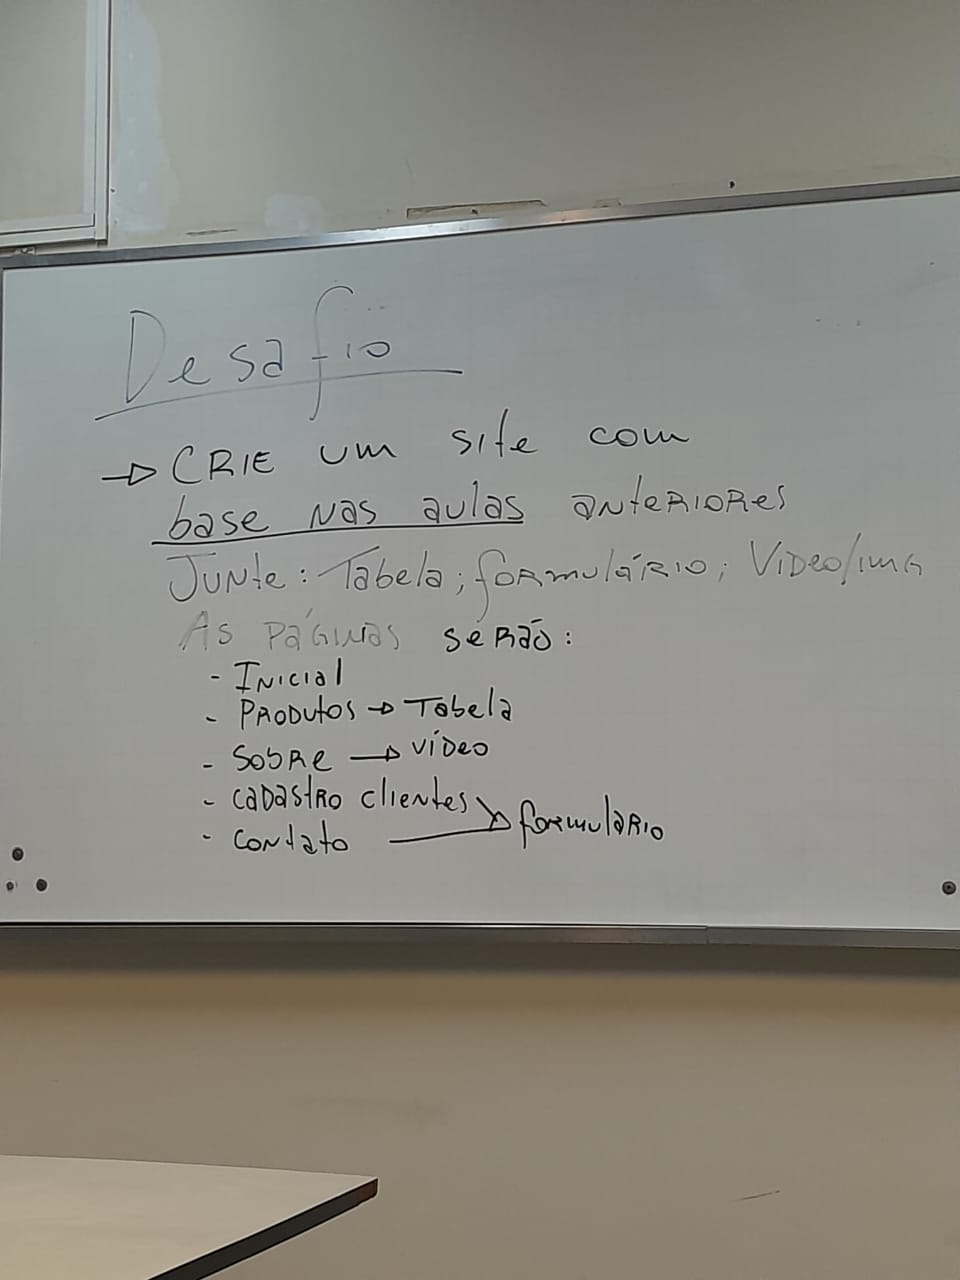 Desafio
→ CRIE um site com
base nas aulas anteriores
Junte: Tabela; formulário; Video/img
As páginas serão:
- Inicial
- Produtos → Tabela
- Sobre → vídeo
- cadastro clientes
- contato → formulário